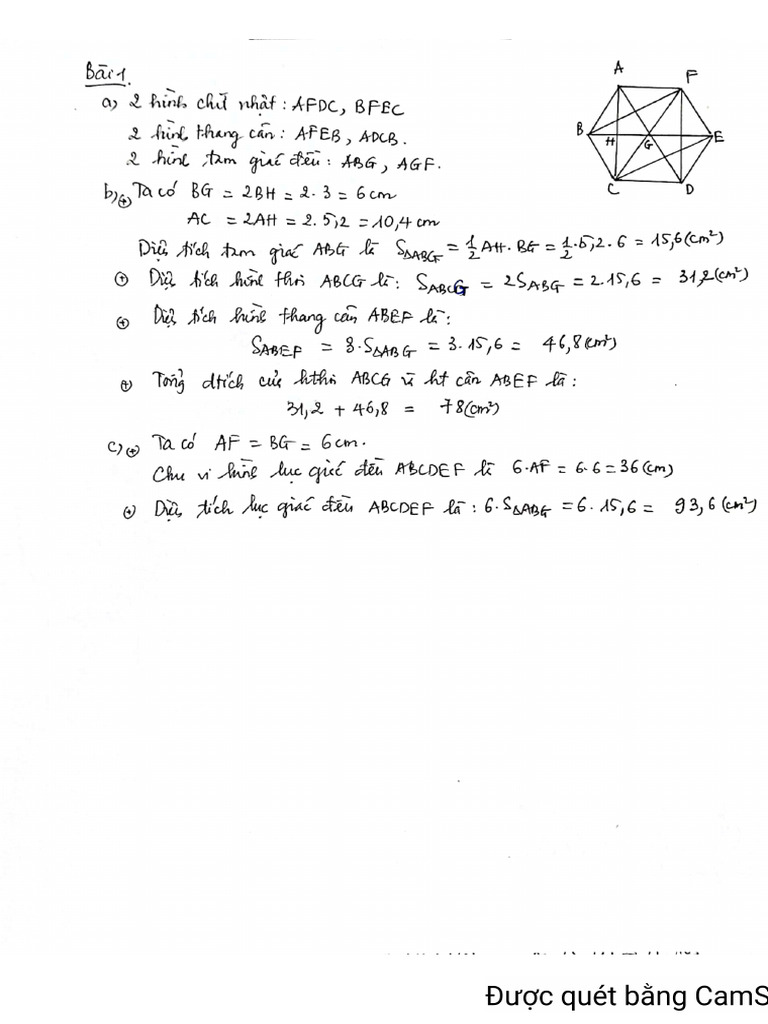 Bài 1.
a) 2 hình chữ nhật : AFDC, BFEC
2 hình thang cân : AFEB, ADCB.
2 hình tam giác đều : ABG, AGF.
b) (+) Ta có BG = 2BH = 2.3 = 6 cm
AC = 2AH = 2.5,2 = 10,4 cm
Diện tích tam giác ABG là S△ABG = 1/2 AH.BG = 1/2 .5,2.6 = 15,6 (cm²)
(+) Diện tích hình thoi ABCG là: SABCG = 2SABG = 2.15,6 = 31,2 (cm²)
(+) Diện tích hình thang cân ABEF là:
SABEF = 3.S△ABG = 3.15,6 = 46,8 (cm²)
(+) Tổng dtích của hthoi ABCG và ht cân ABEF là :
31,2 + 46,8 = 78 (cm²)
c) (+) Ta có AF = BG = 6 cm.
Chu vi hình lục giác đều ABCDEF là 6.AF = 6.6 = 36 (cm)
(+) Diện tích lục giác đều ABCDEF là : 6.S△ABG = 6.15,6 = 93,6 (cm²)
A
F
B
H
G
E
C
D
Được quét bằng CamS